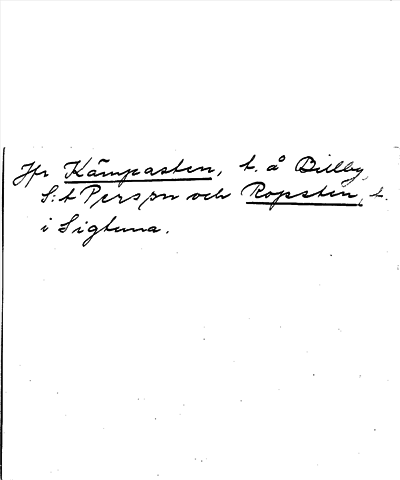 Jfr Kämpasten, t. å Billby,
S:t Pers sn och Ropsten, t.
i Sigtuna.